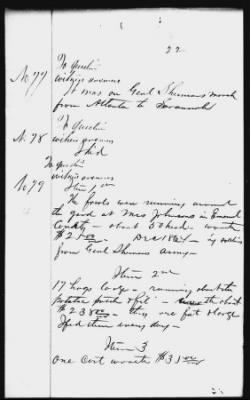 22
To question
No 77 witness answers
It was on Genl Shermans march
from Atlanta to Savannah
To question
No 78 witness answers
I did
To question
No 79 witness answers
Item 1st
The fowls were running around
the yard at Mrs Johnsons in Emanuel
County - about 50 head - worth
$25.00 - Dec 1864 - by soldiers
from Genl Shermans army -
Item 2nd
17 hogs large - running about the
potatoe patch & field - worth about
$238.00 - they are fat & large
I fed them every day -
Item 3
One Cart worth $35.00